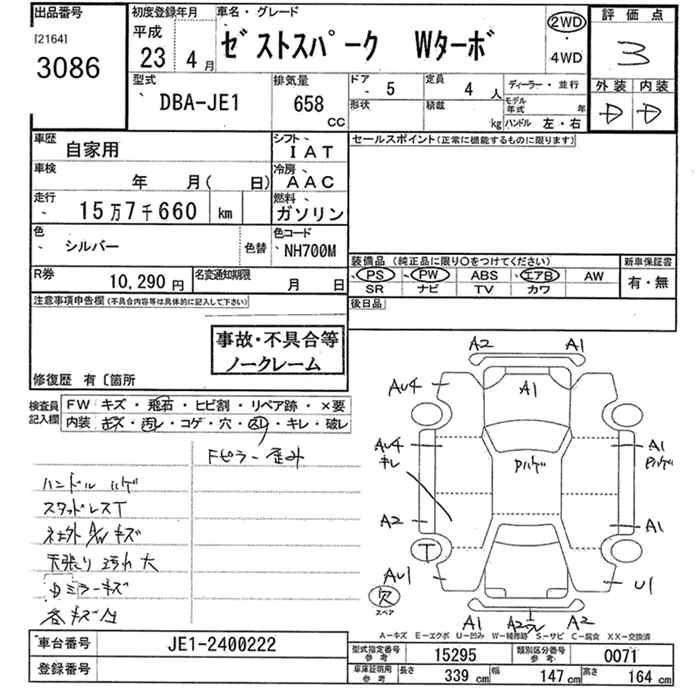 出品番号
[2164]
3086
初度登録年月
平成
23 4月
車名・グレード
ゼストスパーク Wターボ
2WD
・
4WD
評価点
3
外装 内装
D D
型式
DBA-JE1
排気量
658
cc
ドア
5
定員
4 人
ディーラー・並行
形状
積載
kg
モデル年式
年
ハンドル 左・右
車歴
自家用
シフト
IAT
車検
年 月( 日)
冷房
AAC
走行
15万7千660 km
燃料
ガソリン
色
シルバー
色替
色コード
NH700M
R券
10,290円
名変通知期限
月 日
セールスポイント(正常に機能するものに限ります)
装備品(純正品に限り○をつけてください)
PS PW ABS エアB AW
SR ナビ TV カワ
新車保証書
有・無
後日品
注意事項申告欄(不具合内容等は具体的に記入して下さい)
事故・不具合等
ノークレーム
修復歴 有〔箇所
検査員記入欄
FW キズ・飛石・ヒビ割・リペア跡・×要
内装 キズ・汚レ・コゲ・穴・凹・キレ・破レ
Fピラー 歪み
ハンドル ハゲ
スタッドレスT
社外A/W キズ
天張り 汚れ 大
ミラーキズ
各キズ凹
A2 A1
AU4 A1
AU4 キレ
Pハゲ
A1 Pハゲ
A2 A1
T
AU1 U1
欠
スペア
A1 A2 A2
A-キズ E-エクボ U-凹み W-補修跡 S-サビ C-腐食 XX-交換済
車台番号
JE1-2400222
登録番号
型式指定番号 参考
15295
類別区分番号 参考
0071
車庫証明用 参考
長さ 339 cm
幅 147 cm
高さ 164 cm